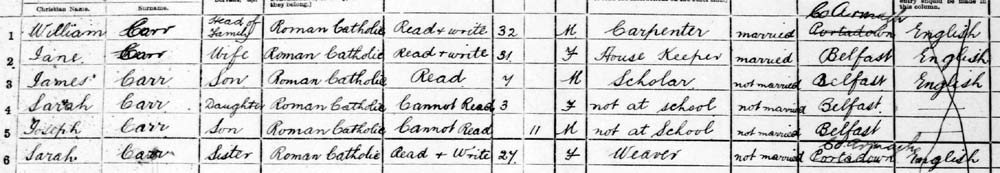 Christian Name. Surname. they belong.] this column.]
Co Armagh
1 William Carr Head of Family Roman Catholic Read + write 32 M Carpenter married Portadown English
2 Jane Carr Wife Roman Catholic Read + write 31 F House Keeper married Belfast English
3 James Carr Son Roman Catholic Read 7 M Scholar not married Belfast English
4 Sarah Carr Daughter Roman Catholic Cannot Read 3 F not at school not married Belfast
5 Joseph Carr Son Roman Catholic Cannot Read 11 M not at School not married Belfast
Co Armagh
6 Sarah Carr Sister Roman Catholic Read + Write 27 F Weaver not married Portadown English